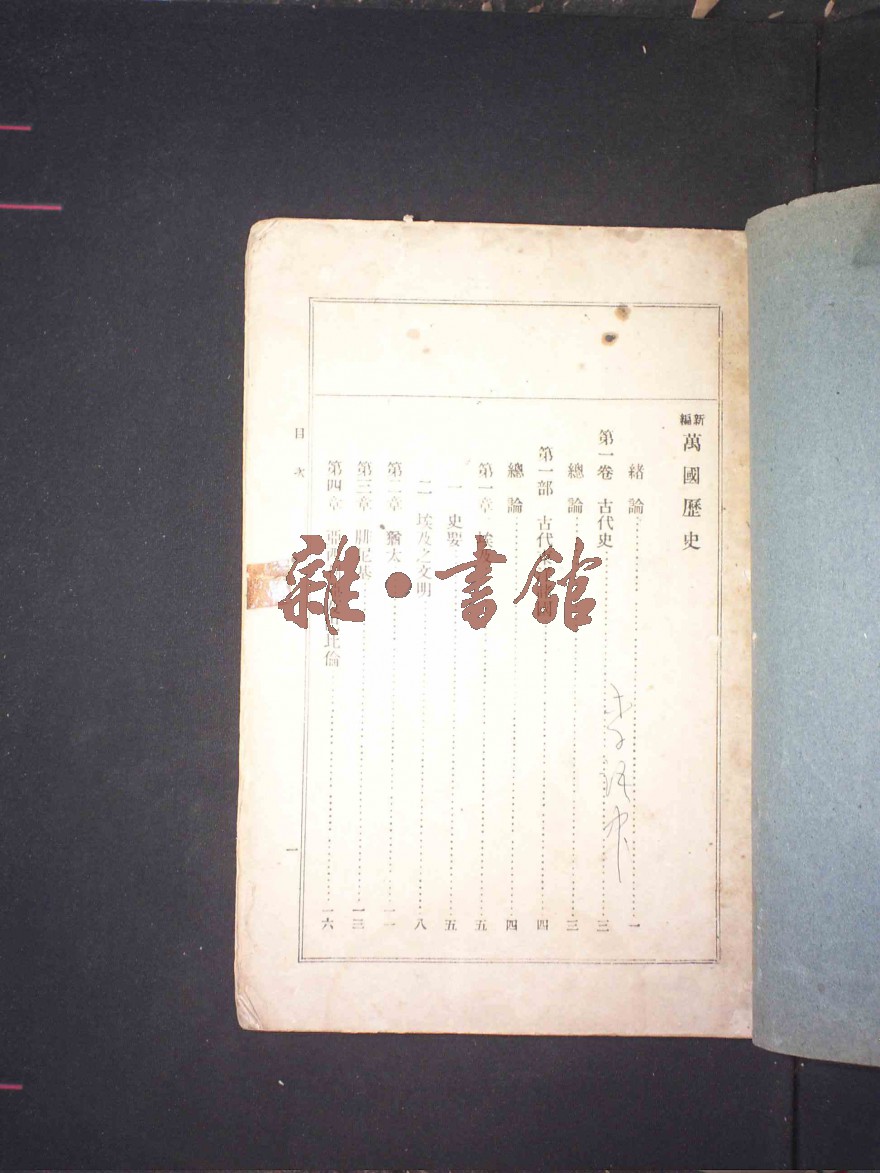 新編萬國歷史
緒論 一
第一卷 古代史 三
總論 三
第一部 古代 四
總論 四
第一章 埃及 五
一 史要 五
二 埃及之文明 八
第二章 猶太 一一
第三章 腓尼基 一三
第四章 亞西 比倫 一六
目次
一
雜·書館